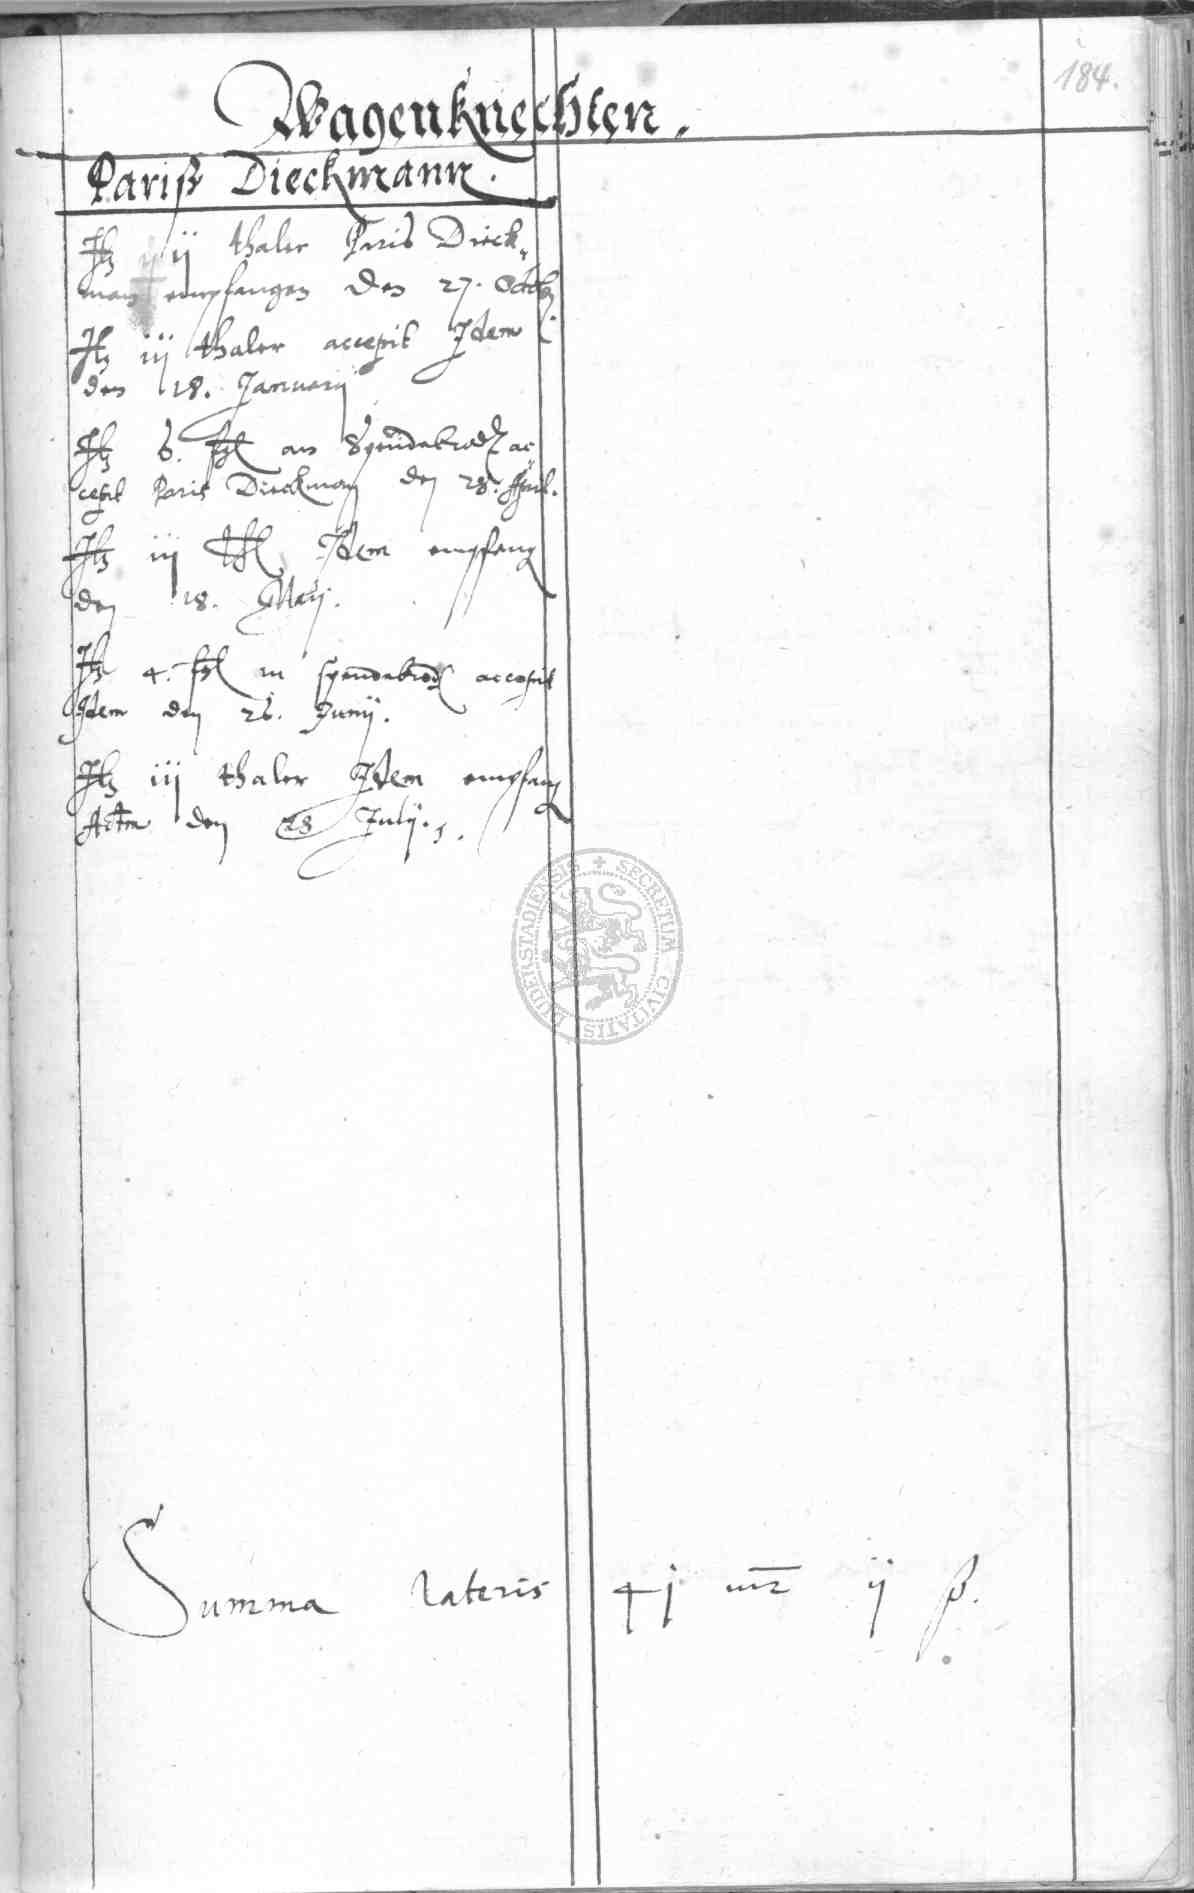 184.
Wagenknechten.
Pariß Dieckmann.
Itz ij thaler Paris Dieck„
man empfangen den 27. Octob
Itz iij thaler accepit Idem
den 18. Januarij
Itz 6. ßl an Spendebrodt ac„
cepit Paris Dieckman den 28. April.
Itz iij thl Idem empfang
den 18. Maij.
Itz 4. ßl in spendebrodt accepit
Idem den 26. Junij.
Itz iij thaler Idem empfang
Actm den 28 Julij.
SECRETUM CIVITATIS DUDERSTADIENSIS
Summa lateris 4j mr ij ß.